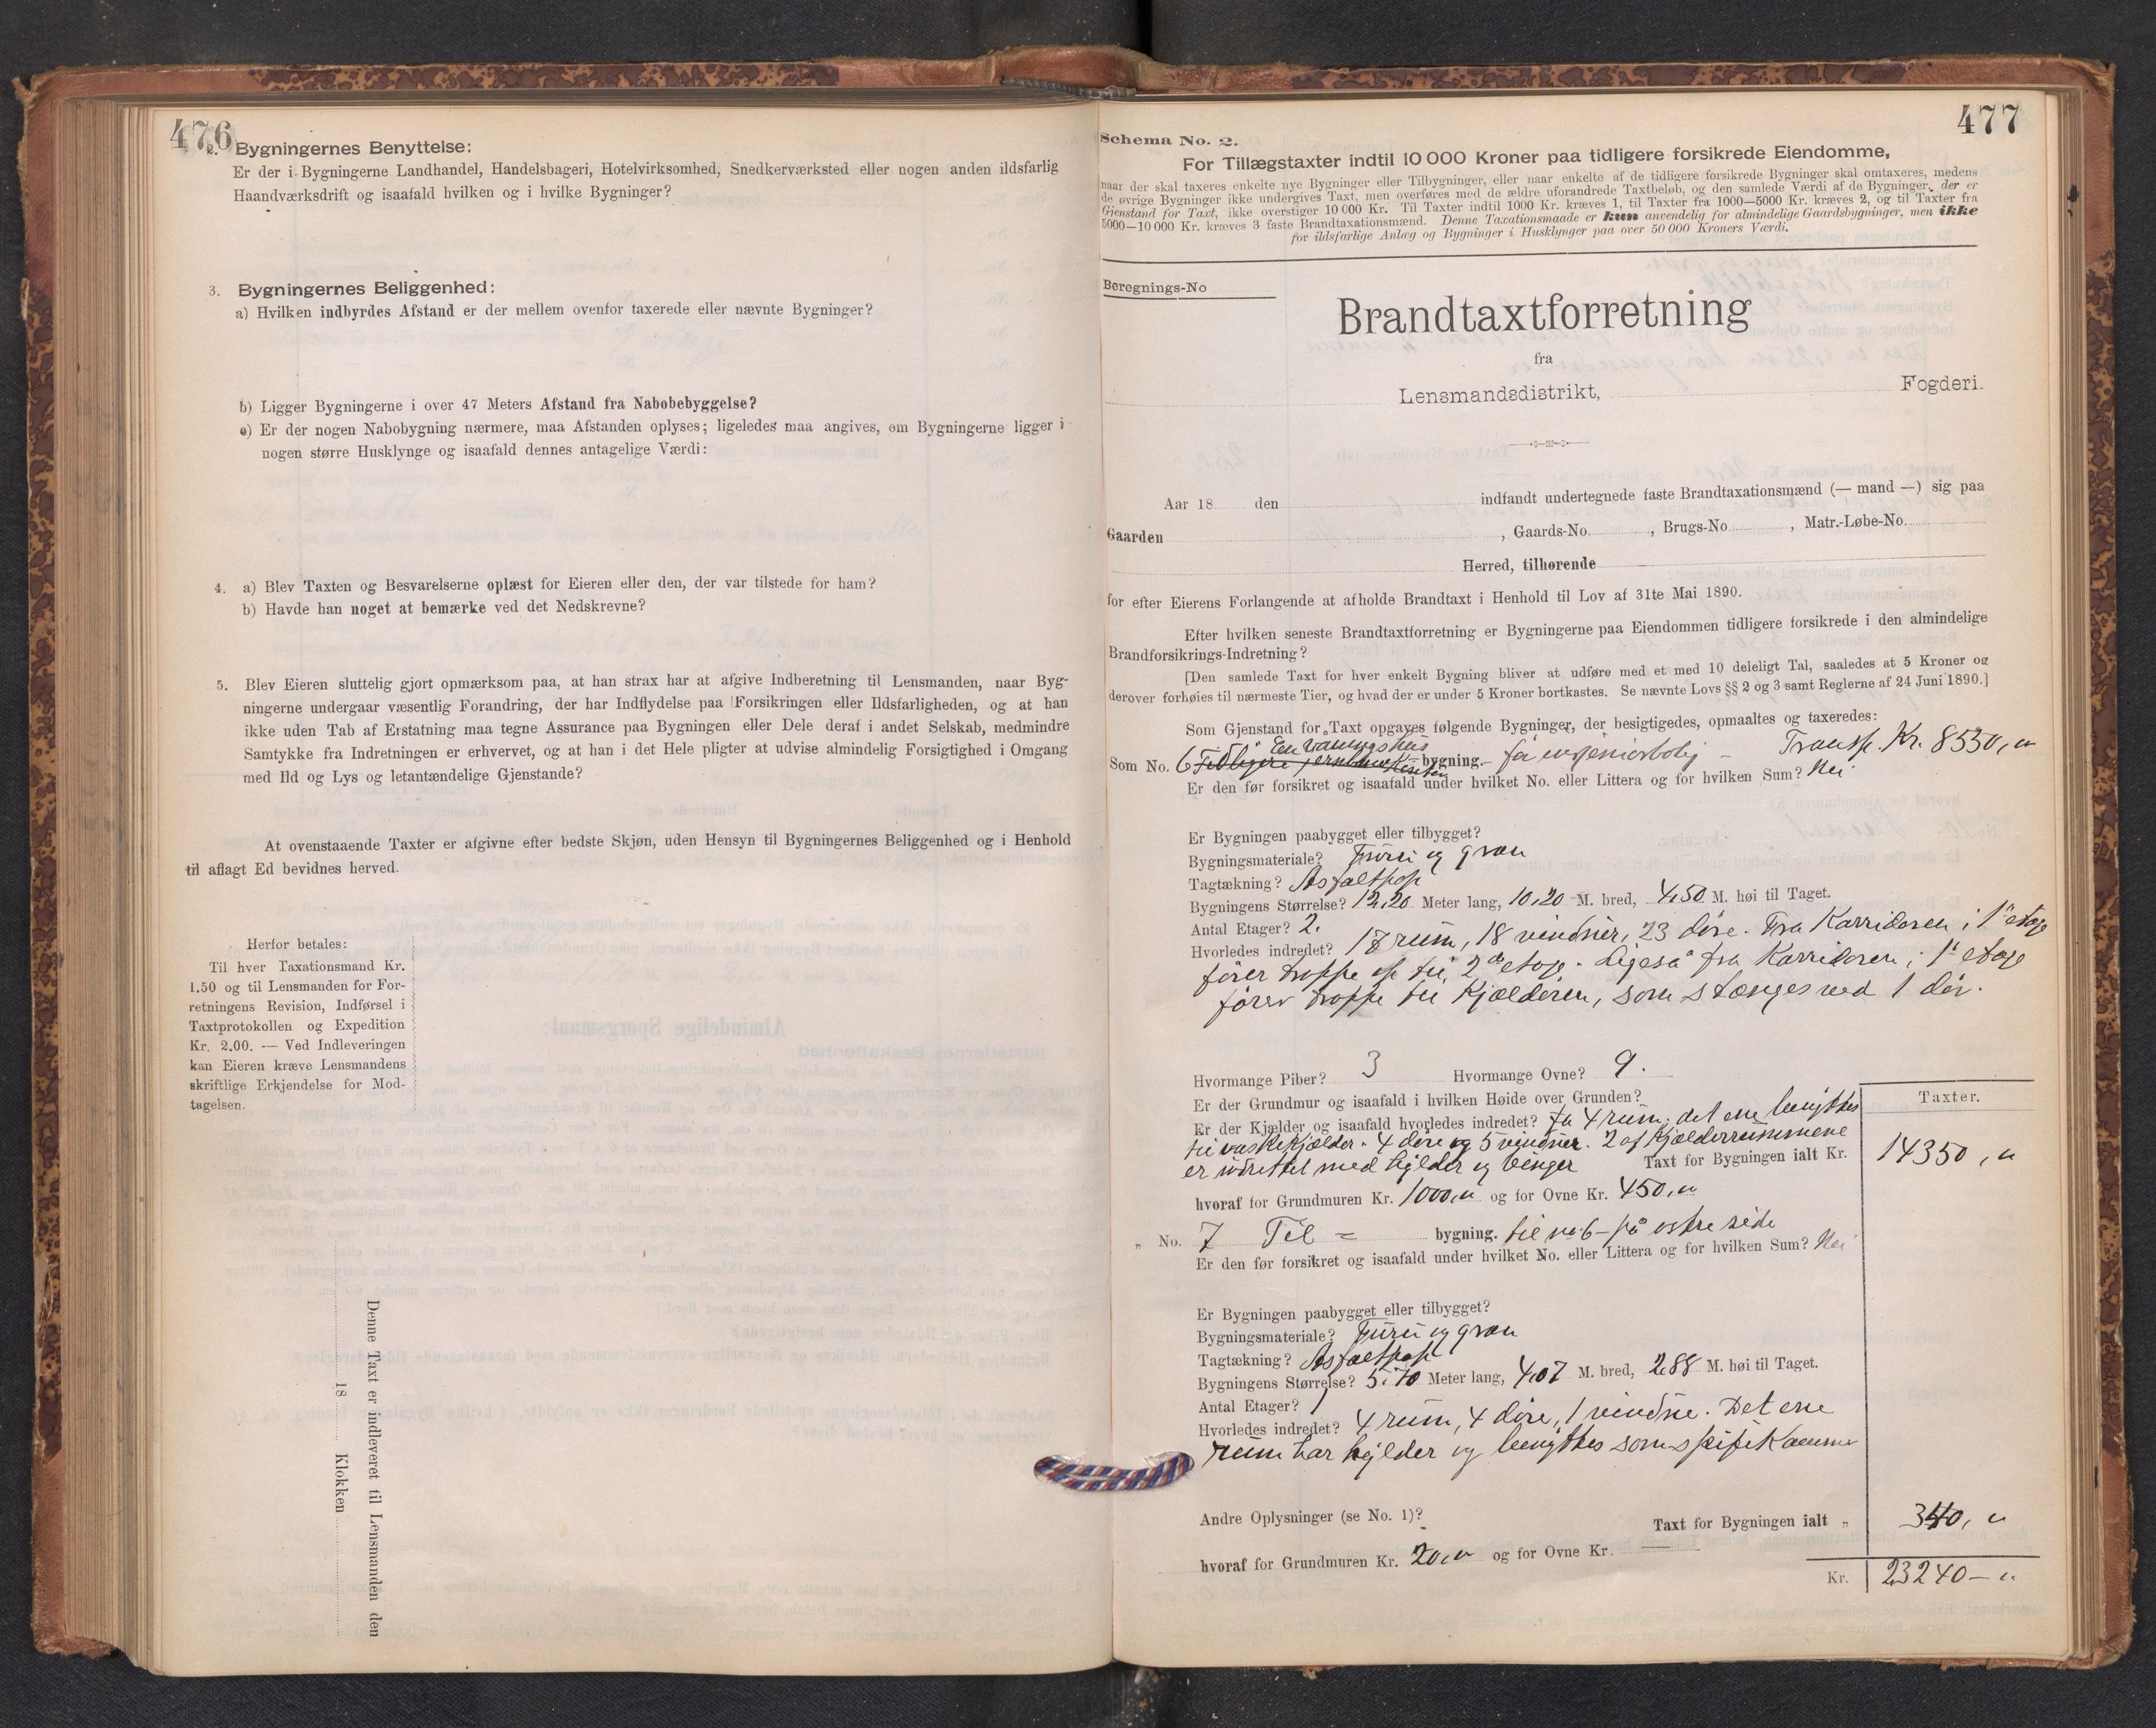 476
2. Bygningernes Benyttelse:
Er der i Bygningerne Landhandel, Handelsbageri, Hotelvirksomhed, Snedkerværksted eller nogen anden ildsfarlig
Haandværksdrift og isaafald hvilken og i hvilke Bygninger?
3. Bygningernes Beliggenhed:
a) Hvilken indbyrdes Afstand er der mellem ovenfor taxerede eller nævnte Bygninger?
b) Ligger Bygningerne i over 47 Meters Afstand fra Nabobebyggelse?
c) Er der nogen Nabobygning nærmere, maa Afstanden oplyses; ligeledes maa angives, om Bygningerne ligger i
nogen større Husklynge og isaafald dennes antagelige Værdi:
4. a) Blev Taxten og Besvarelserne oplæst for Eieren eller den, der var tilstede for ham?
b) Havde han noget at bemærke ved det Nedskrevne?
5. Blev Eieren sluttelig gjort opmærksom paa, at han strax har at afgive Indberetning til Lensmanden, naar Byg-
ningerne undergaar væsentlig Forandring, der har Indflydelse paa Forsikringen eller Ildsfarligheden, og at han
ikke uden Tab af Erstatning maa tegne Assurance paa Bygningen eller Dele deraf i andet Selskab, medmindre
Samtykke fra Indretningen er erhvervet, og at han i det Hele pligter at udvise almindelig Forsigtighed i Omgang
med Ild og Lys og letantændelige Gjenstande?
At ovenstaaende Taxter er afgivne efter bedste Skjøn, uden Hensyn til Bygningernes Beliggenhed og i Henhold
til aflagt Ed bevidnes herved.
Herfor betales:
Til hver Taxationsmand Kr.
1.50 og til Lensmanden for For-
retningens Revision, Indførsel i
Taxtprotokollen og Expedition
Kr. 2.00. — Ved Indleveringen
kan Eieren kræve Lensmandens
skriftlige Erkjendelse for Mod-
tagelsen.
Denne Taxt er indleveret til Lensmanden den
18 Klokken
477
Schema No. 2.
For Tillægstaxter indtil 10 000 Kroner paa tidligere forsikrede Eiendomme,
naar der skal taxeres enkelte nye Bygninger eller Tilbygninger, eller naar enkelte af de tidligere forsikrede Bygninger skal omtaxeres, medens
de øvrige Bygninger ikke undergives Taxt, men overføres med de ældre uforandrede Taxtbeløb, og den samlede Værdi af de Bygninger, der er
Gjenstand for Taxt, ikke overstiger 10 000 Kr. Til Taxter indtil 1000 Kr. kræves 1, til Taxter fra 1000—5000 Kr. kræves 2, og til Taxter fra
5000—10 000 Kr. kræves 3 faste Brandtaxationsmænd. Denne Taxationsmaade er kun anvendelig for almindelige Gaardsbygninger, men ikke
for ildsfarlige Anlæg og Bygninger i Husklynger paa over 50 000 Kroners Værdi.
Beregnings-No
Brandtaxtforretning
fra
Lensmandsdistrikt, Fogderi.
Aar 18 den indfandt undertegnede faste Brandtaxationsmænd (— mand —) sig paa
Gaarden , Gaards-No. , Brugs-No. , Matr.-Løbe-No.
Herred, tilhørende
for efter Eierens Forlangende at afholde Brandtaxt i Henhold til Lov af 31te Mai 1890.
Efter hvilken seneste Brandtaxtforretning er Bygningerne paa Eiendommen tidligere forsikrede i den almindelige
Brandforsikrings-Indretning?
[Den samlede Taxt for hver enkelt Bygning bliver at udføre med et med 10 deleligt Tal, saaledes at 5 Kroner og
derover forhøies til nærmeste Tier, og hvad der er under 5 Kroner bortkastes. Se nævnte Lovs §§ 2 og 3 samt Reglerne af 24 Juni 1890.]
Som Gjenstand for Taxt opgaves følgende Bygninger, der besigtigedes, opmaaltes og taxeredes:
En Vaaningshus Transp. Kr. 8550,"
Som No. 6 bygning. fa ingeniørbolig
Er den før forsikret og isaafald under hvilket No. eller Littera og for hvilken Sum? Nei
Er Bygningen paabygget eller tilbygget?
Bygningsmateriale? Furu og gran
Tagtækning? Asfaltpap
Bygningens Størrelse? 12,20 Meter lang, 10,20 M. bred, 4,50 M. høi til Taget.
Antal Etager? 2.
Hvorledes indredet? 17 rum, 18 vinduer, 23 døre. Fra Korridoren i 1ste etage
fører trappe op til 2den etage. Ligeså fra Korridoren i 1ste etage
fører trappe til Kjælderen, som stænges ved 1 dør.
Hvormange Piber? 3 Hvormange Ovne? 9.
Er der Grundmur og isaafald i hvilken Høide over Grunden?
Er der Kjælder og isaafald hvorledes indredet? Ja 4 rum, det ene benyttes
til vaskekjælder. 4 døre og 5 vinduer. 2 af Kjælderrummene
er indrettet med hylder og binger
Taxter.
Taxt for Bygningen ialt Kr. 14350,"
hvoraf for Grundmuren Kr. 1000," og for Ovne Kr. 450,"
" No. 7 Til = bygning. til no 6 - på østre side
Er den før forsikret og isaafald under hvilket No. eller Littera og for hvilken Sum? Nei
Er Bygningen paabygget eller tilbygget?
Bygningsmateriale? Furu og gran
Tagtækning? Asfaltpap
Bygningens Størrelse? 5.70 Meter lang, 4,07 M. bred, 2,88 M. høi til Taget.
Antal Etager? 1
Hvorledes indredet? 4 rum, 4 døre, 1 vindue. Det ene
rum har hylder og benyttes som spisekammer
Andre Oplysninger (se No. 1)?
Taxt for Bygningen ialt " 340,"
hvoraf for Grundmuren Kr. 20," og for Ovne Kr. —
Kr. 23240 - "